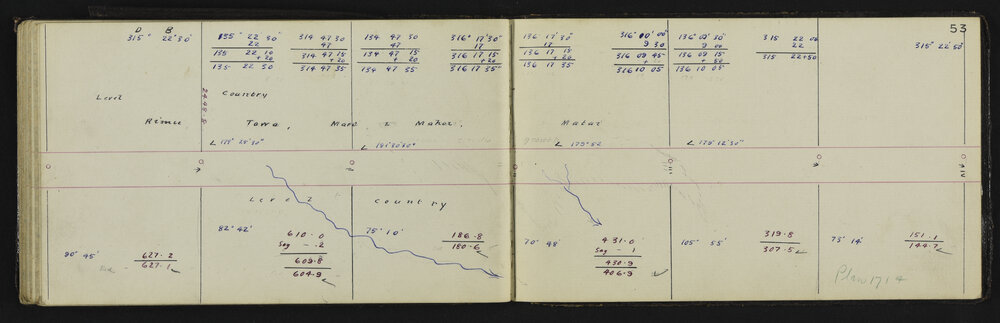 53
D B
315° 22' 30" 135 22 30 314 47 30 134 47 30 316° 17' 30" 136 17 30 316° 00' 00 136° 09' 30 315 22 00 315° 22' 50"
22 47 47 17 17 9 30 9 00 22
135 22 10 314 47 15 134 47 15 316 17 15 136 17 15 316 09 45 136 09 15 315 22+50
+ 20 + 20 + 20 + 20
135 22 50 314 47 35 134 47 35 316 17 35 136 17 35 316 10 05 136 10 05
Level Country
Rimu Tawa, Mare & Mahoe, Matai
∠ 181° 30' 30" ∠ 179° 52 ∠ 179° 12' 30"
Level Country
82° 42' 610.0 75° 10' 186.8 431.0 319.8 151.1
90° 45' 627.2 Say - .2 180.6 70° 48' Say - 1 105° 55' 307.5 73° 14' 144.7
627.1 609.8 430.9
604.9 406.9
Plan 1714